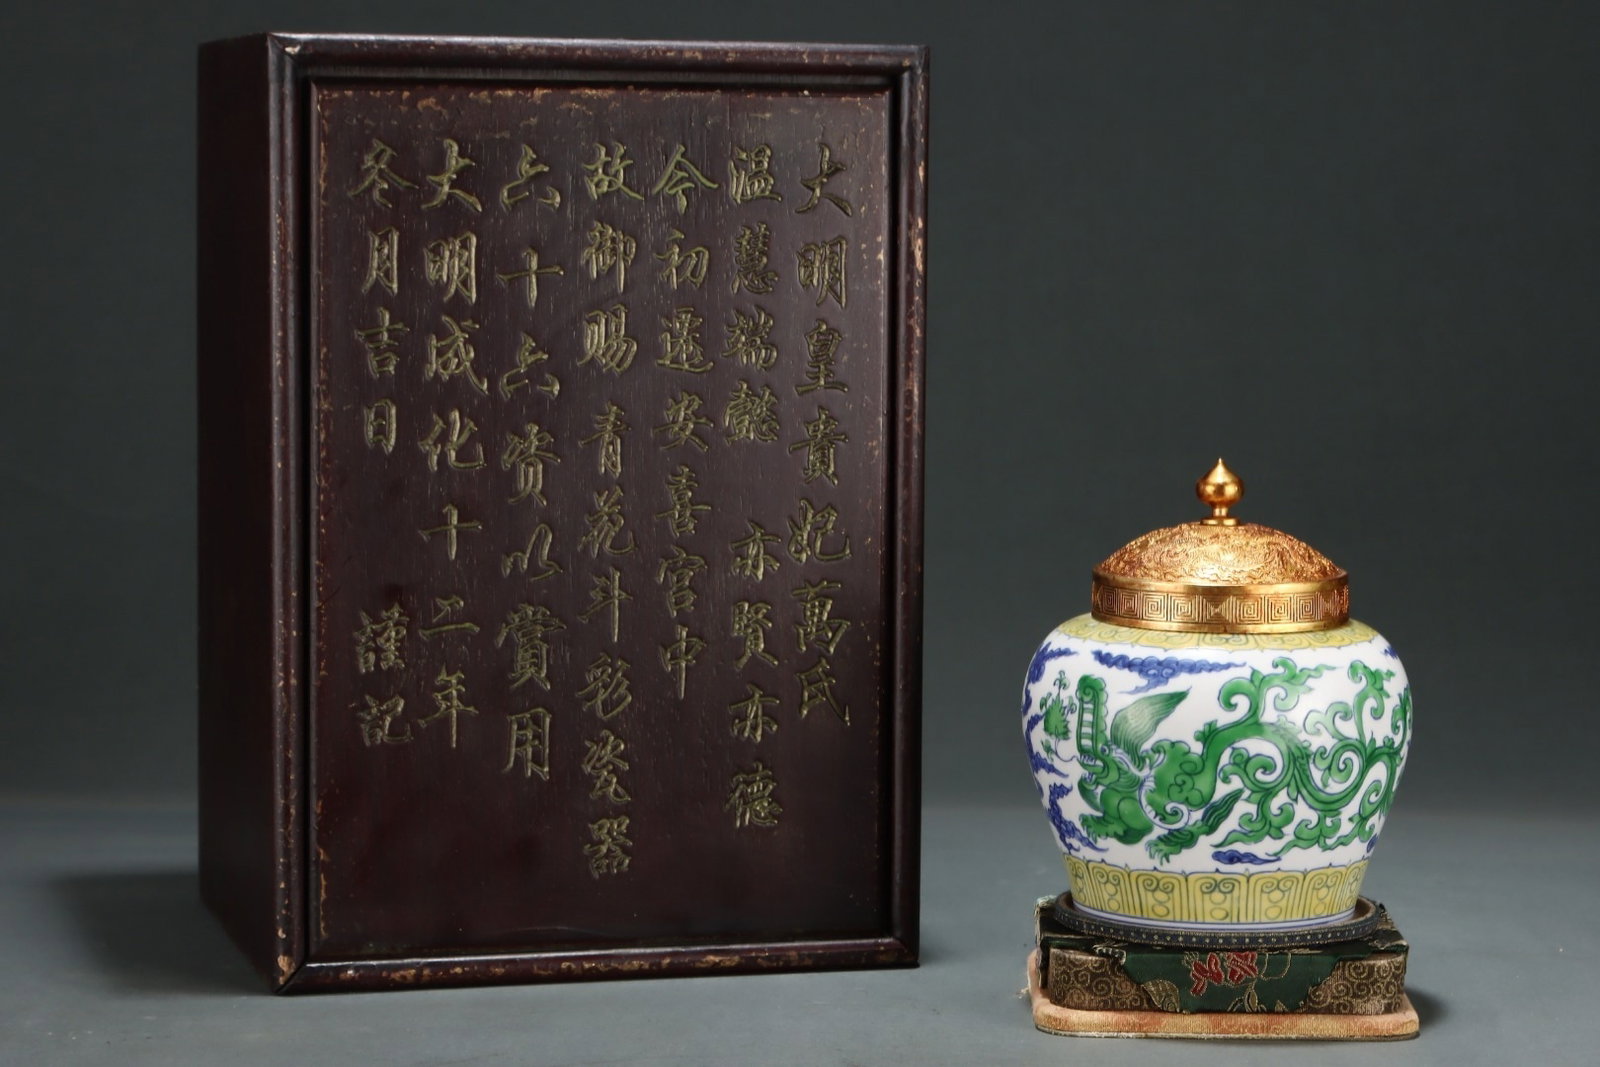 大明皇貴妃萬氏
温慧端懿 亦賢亦德
今初遷安喜宮中
故御賜 青花斗彩瓷器
六十六资以賞用
大明成化十二年
冬月吉日 謹記